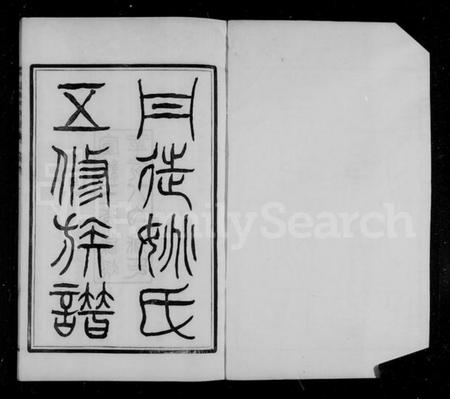 丹徒姚氏
五修族譜
FamilySearch